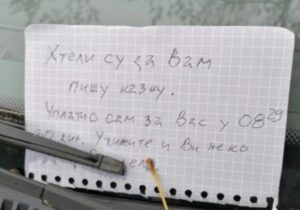 Хтели су да Вам
пишу казну.
Уплатио сам за Вас у 08 29
дин. Учините и Ви неко
дело